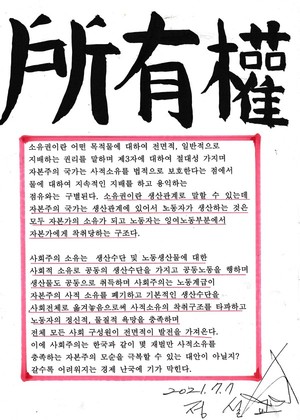 所有權
소유권이란 어떤 목적물에 대하여 전면적, 일반적으로
지배하는 권리를 말하며 제3자에 대하여 절대성 가지며
자본주의 국가는 사적소유를 법적으로 보호한다는 점에서
물에 대하여 지속적인 지배를 하고 용익하는
점유와는 구별된다. 소유권이란 생산관계로 말할 수 있는데
자본주의 국가는 생산관계에 있어서 노동자가 생산하는 것은
모두 자본가의 소유가 되고 노동자는 잉여노동부분에서
자본가에게 착취당하는 구조다.
사회주의 소유는 생산수단 및 노동생산물에 대한
사회적 소유로 공동의 생산수단을 가지고 공동노동을 행하며
생산물도 공동으로 취득하며 사회주의는 노동계급이
자본주의 사적 소유를 폐기하고 기본적인 생산수단을
사회전체로 옮겨놓음으로써 사적소유의 착취구조를 타파하고
노동자의 정신적, 물질적 욕망을 충족하며
전체 모든 사회 구성원이 전면적이 발전을 가져온다.
이에 사회주의는 한국과 같이 몇 재벌만 사적소유를
충족하는 자본주의 모순을 극복할 수 있는 대안이 아닐지?
갈수록 어려워지는 경제 난국에 기가 막힌다.
2021.7.7
정설교